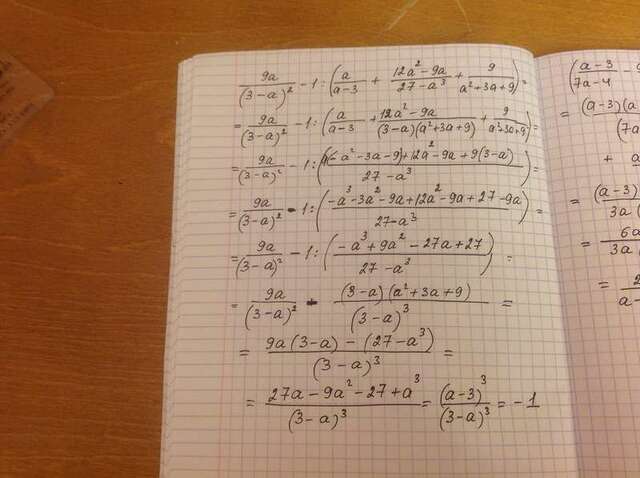 9a/(3-a)² - 1 : (a/(a-3) + (12a²-9a)/(27-a³) + 9/(a²+3a+9)) =
= 9a/(3-a)² - 1 : (a/(a-3) + (12a²-9a)/((3-a)(a²+3a+9)) + 9/(a²+3a+9)) =
= 9a/(3-a)² - 1 : ((-a²-3a-9)+12a²-9a+9(3-a))/(27-a³) =
= 9a/(3-a)² - 1 : ((-a³-3a²-9a+12a²-9a+27-9a)/(27-a³)) =
= 9a/(3-a)² - 1 : ((-a³+9a²-27a+27)/(27-a³)) =
= 9a/(3-a)² - (3-a)(a²+3a+9)/(3-a)³ =
= (9a(3-a)-(27-a³))/(3-a)³ =
= (27a-9a²-27+a³)/(3-a)³ = (a-3)³/(3-a)³ = -1
(a-3/7a-4
= (a-3)(a
(7a
+ a
= (a-3)/3a(
= 6a/3a(
= 2/a-